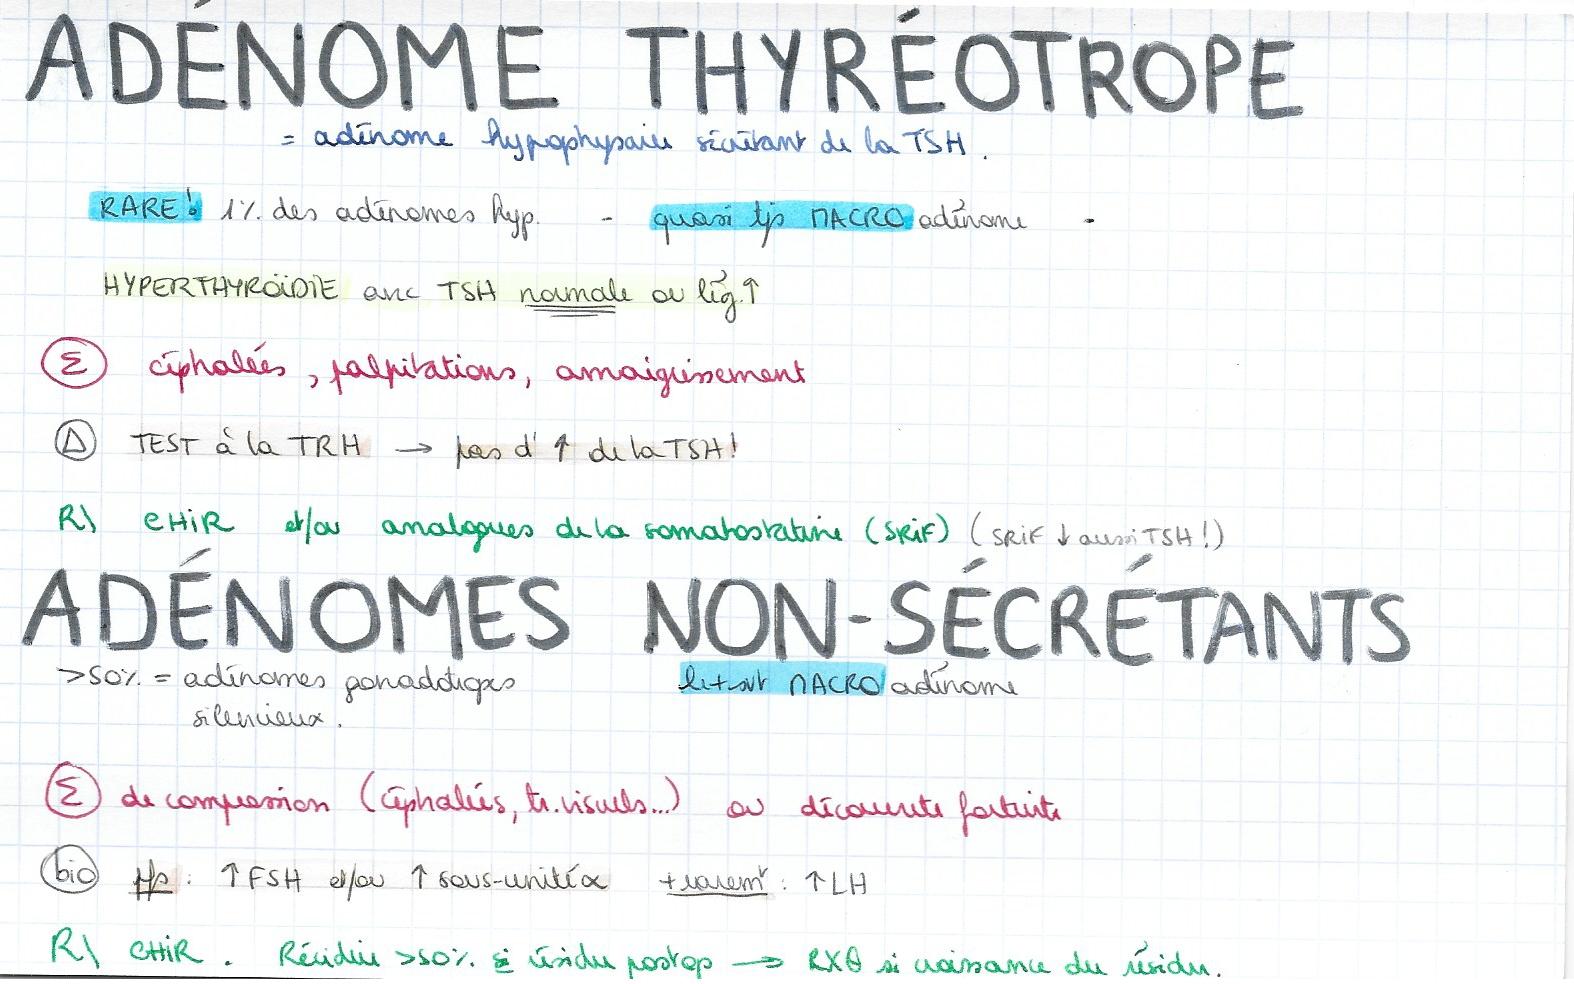 ADÉNOME THYRÉOTROPE
= adénome hypophysaire sécrétant de la TSH.
RARE! 1% des adénomes hyp. - quasi tjs MACROadénome -
HYPERTHYROÏDIE avec TSH normale ou lég. ↑
Σ céphalées, palpitations, amaigrissement
Δ TEST à la TRH → pas d' ↑ de la TSH!
R\ CHIR et/ou analogues de la somatostatine (SRIF) (SRIF ↓ aussi TSH!)
ADÉNOMES NON-SÉCRÉTANTS
>50% = adénomes gonadotropes silencieux. MACROadénome
Σ de compression (céphalées, tr. visuels...) ou découverte fortuite
bio pfs : ↑ FSH et/ou ↑ sous-unité α + raremt : ↑ LH
R\ CHIR. Récidive >50% si résidu postop → RXθ si croissance du résidu.